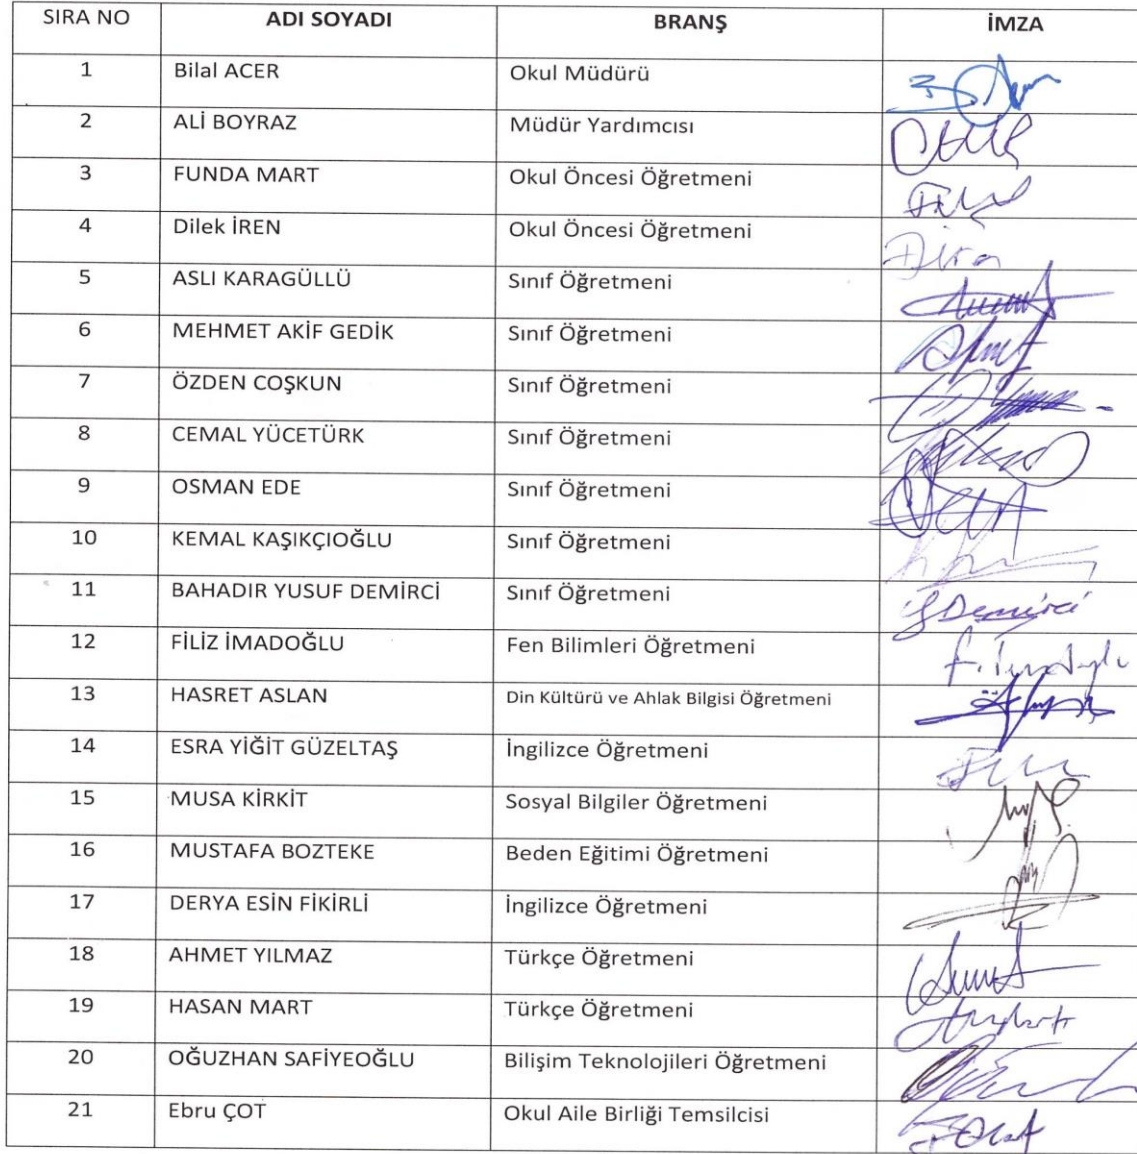 SIRA NO ADI SOYADI BRANŞ İMZA
1 Bilal ACER Okul Müdürü
2 ALİ BOYRAZ Müdür Yardımcısı
3 FUNDA MART Okul Öncesi Öğretmeni
4 Dilek İREN Okul Öncesi Öğretmeni
5 ASLI KARAGÜLLÜ Sınıf Öğretmeni
6 MEHMET AKİF GEDİK Sınıf Öğretmeni
7 ÖZDEN COŞKUN Sınıf Öğretmeni
8 CEMAL YÜCETÜRK Sınıf Öğretmeni
9 OSMAN EDE Sınıf Öğretmeni
10 KEMAL KAŞIKÇIOĞLU Sınıf Öğretmeni
11 BAHADIR YUSUF DEMİRCİ Sınıf Öğretmeni Demirci
12 FİLİZ İMADOĞLU Fen Bilimleri Öğretmeni
13 HASRET ASLAN Din Kültürü ve Ahlak Bilgisi Öğretmeni
14 ESRA YİĞİT GÜZELTAŞ İngilizce Öğretmeni
15 MUSA KİRKİT Sosyal Bilgiler Öğretmeni
16 MUSTAFA BOZTEKE Beden Eğitimi Öğretmeni
17 DERYA ESİN FİKİRLİ İngilizce Öğretmeni
18 AHMET YILMAZ Türkçe Öğretmeni
19 HASAN MART Türkçe Öğretmeni
20 OĞUZHAN SAFİYEOĞLU Bilişim Teknolojileri Öğretmeni
21 Ebru ÇOT Okul Aile Birliği Temsilcisi